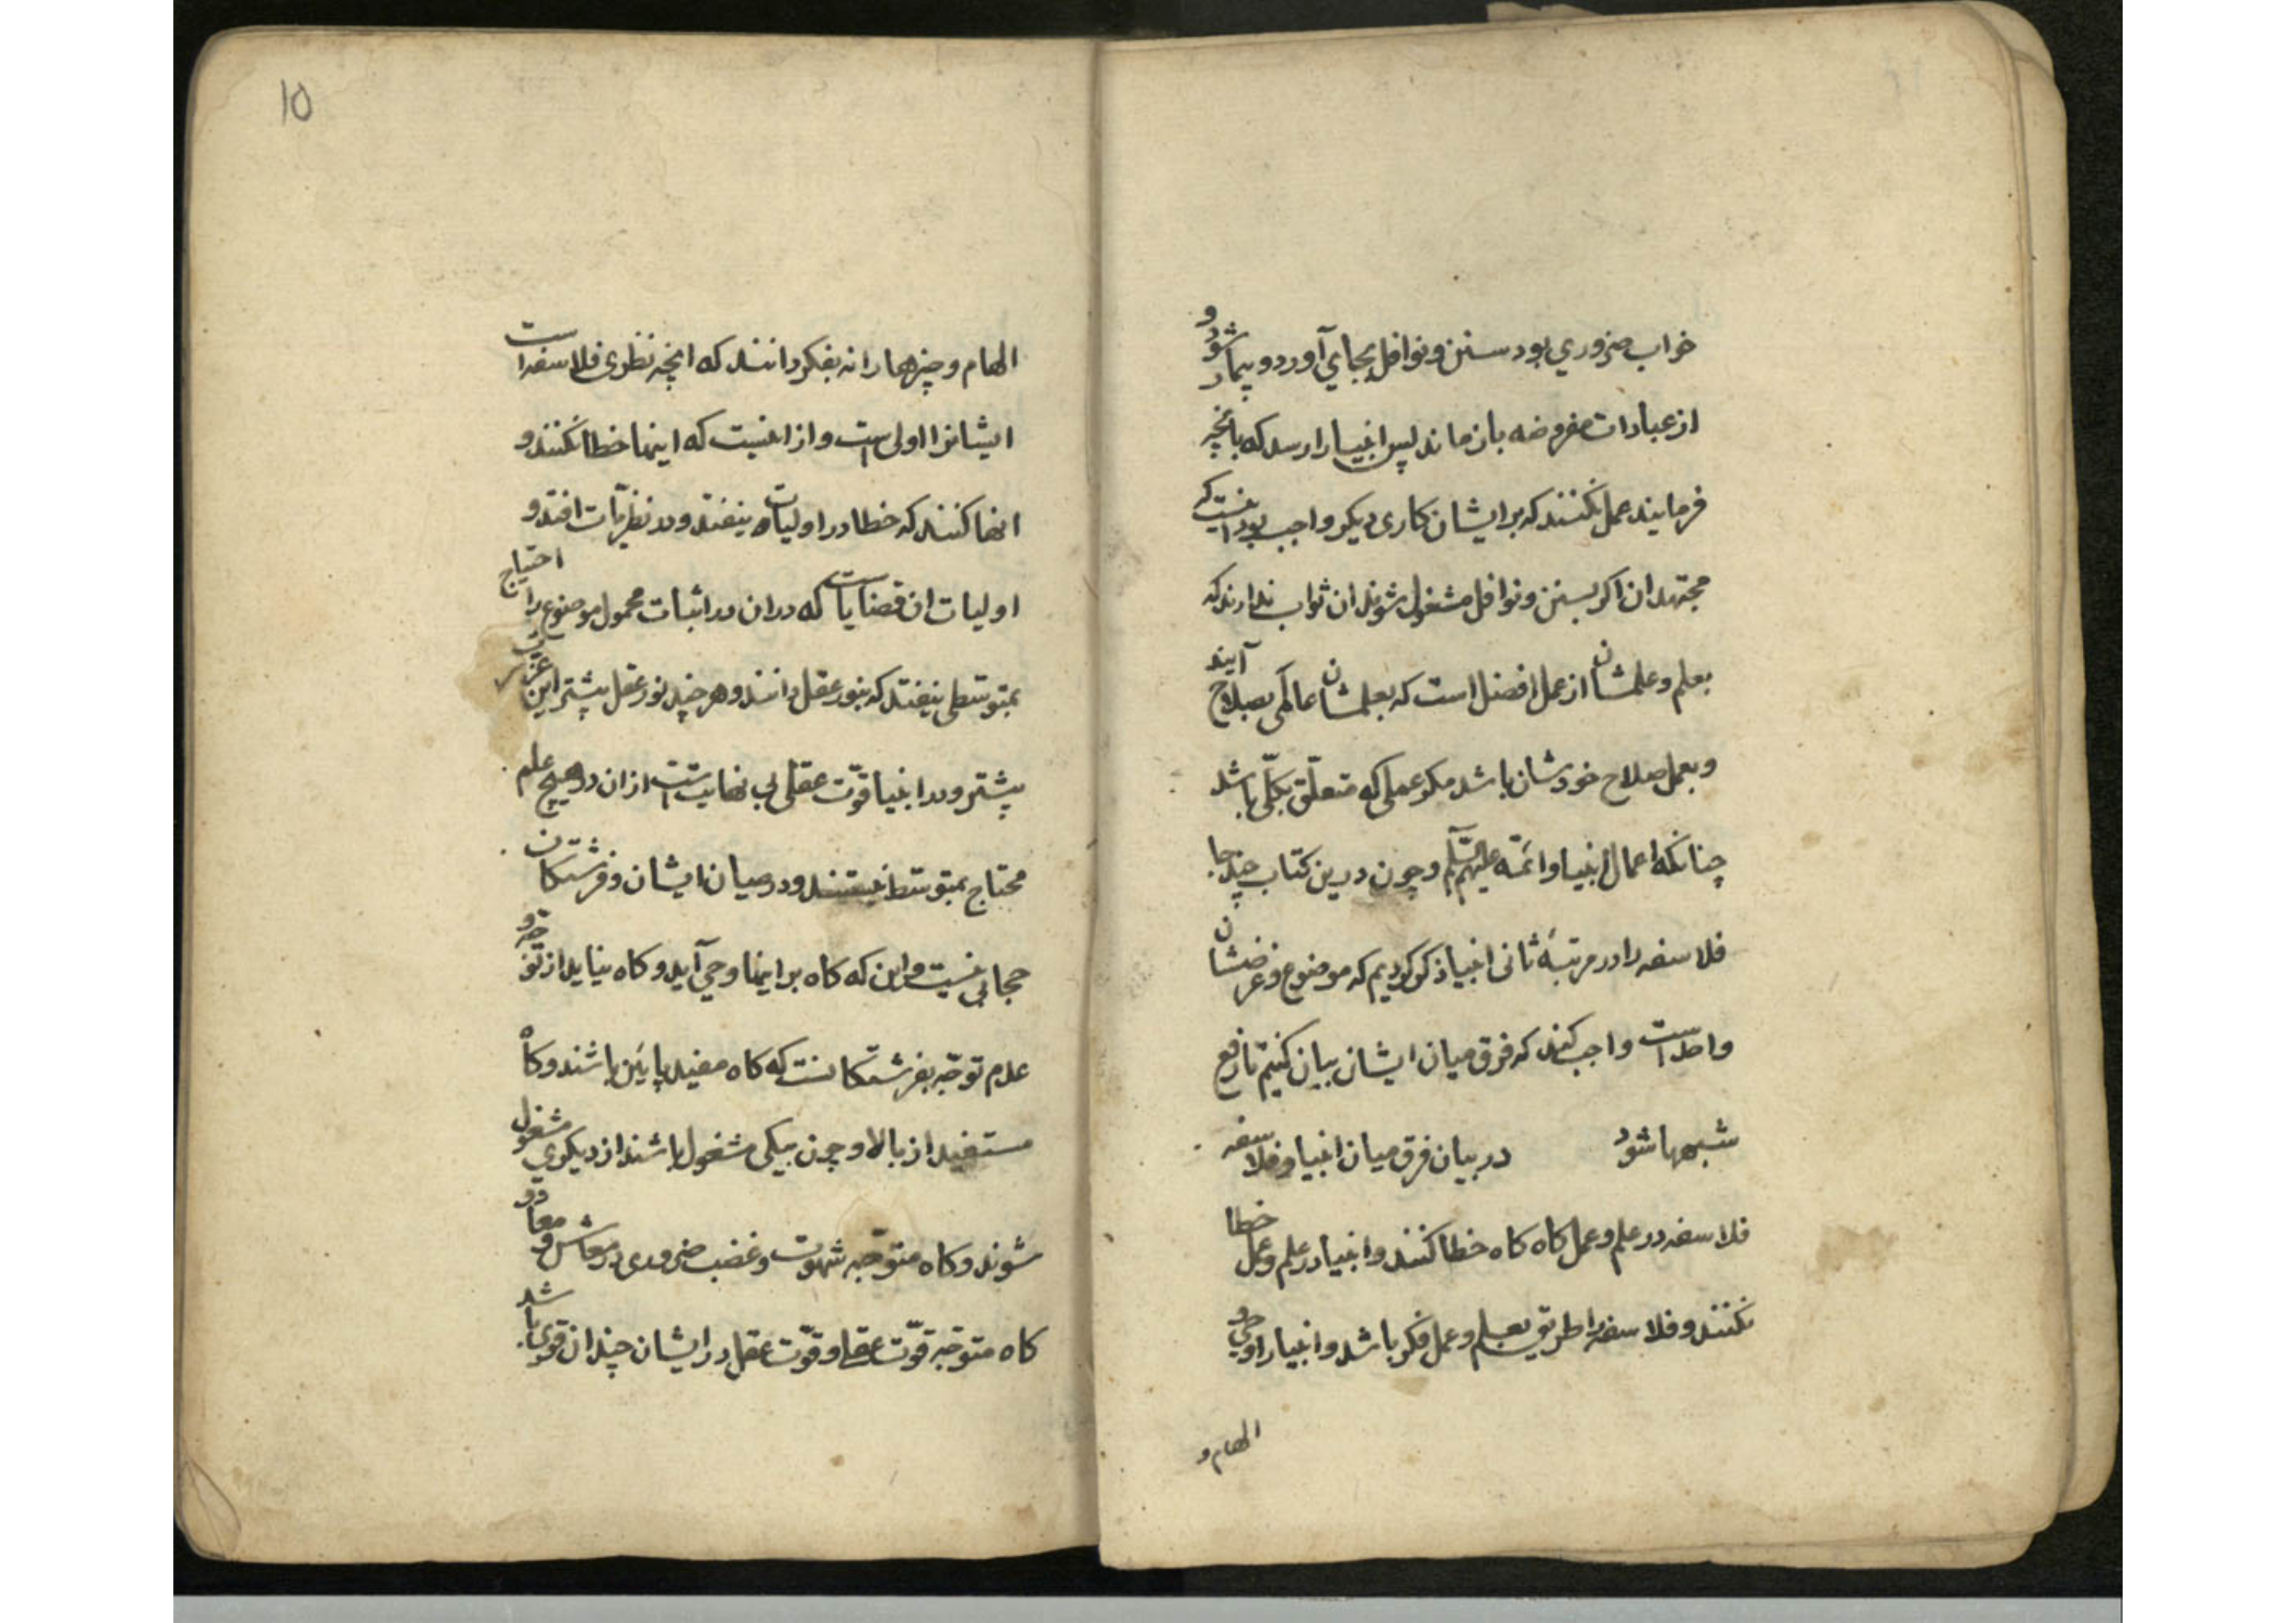 خواب ضروری بود سنن و نوافل بجای آورد و بیمار شود و
از عبادات مفروضه باز ماند پس انبیا را رسد که بانچه
فرمایند عمل نکنند که بر ایشان کاری دیکر واجب بود اینست که
مجتهدان اکر بسنن و نوافل مشغول شوند ان ثواب ندارند که
بعلم و علمشان از عمل افضل است که بعلمشان عالمی بصلاح آیند
و بعمل صلاح خودشان باشد مکر عملی که متعلّق بکلّی باشد
چنانکه اعمال انبیا و ائمّه علیهم السّلم و چون درین کتاب چند جا
فلاسفه را در مرتبهٔ ثانی انبیا ذکر کردیم که موضوع و غرضشان
واحد است واجب کند که فرق میان ایشان بیان کنیم تا رفع
شبهها شود در بیان فرق میان انبیا و فلاسفه
فلاسفه در علم و عمل کاه کاه خطا کنند و انبیا در علم و عمل خطا
نکنند و فلاسفه را طریق بعلم و عمل فکر باشد و انبیا را وحی و
الهام و
10
الهام و چیزها را نه بفکر دانند که انچه نظری فلاسفه است
ایشانرا اولی است و از اینست که اینها خطا نکنند و
انها کنند که خطا در اولیات نیفتد و در نظریّات افتد و
اولیات ان قضایاست که دران در اثبات محمول موضوع را احتیاج
بمتوسّطی نیفتد که بنور عقل دانند و هر چند نور عقل بیشتر این
بیشتر و در انبیا قوّت عقلی بی نهایتست ازان در هیچ علم
محتاج بمتوسّط نیستند و در میان ایشان و فرشتکان
حجابی نیست و این که کاه بر اینها وحی آید و کاه نیاید از توجّه و
عدم توجّه بفرشتکانست که کاه مفید پایین باشند و کاه
مستفید از بالا و چون بیکی مشغول باشند از دیکری مشغول
شوند و کاه متوجّه شهوت و غضب ضروری در معاش و معاد و
کاه متوجّه قوّت عقلی و قوّت عقل در ایشان چندان قوی باشد